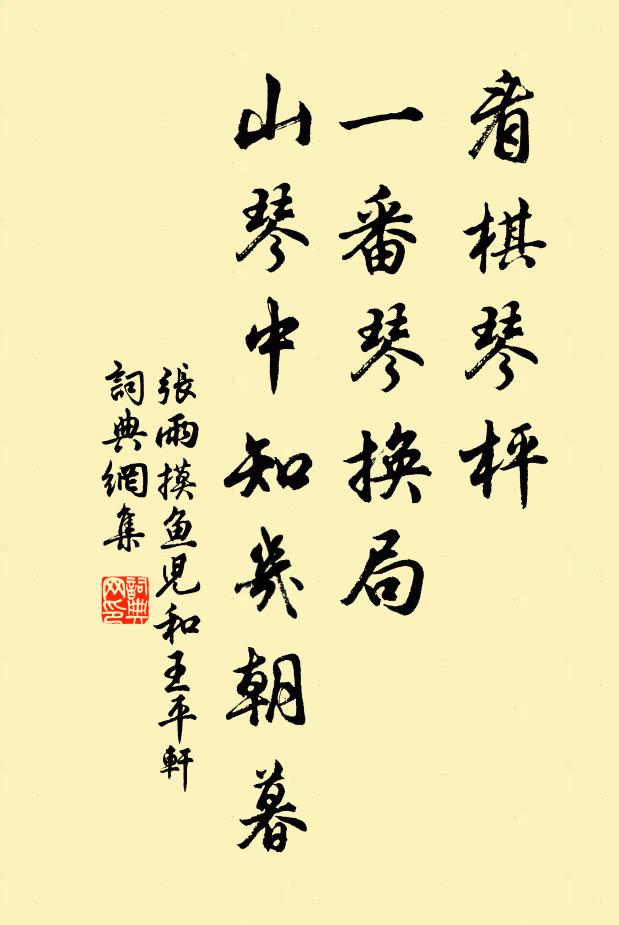 看棋琴枰
一番琴換局
山琴中知幾朝暮
張雨摸魚児和王平軒
詞典網集
詞典网印